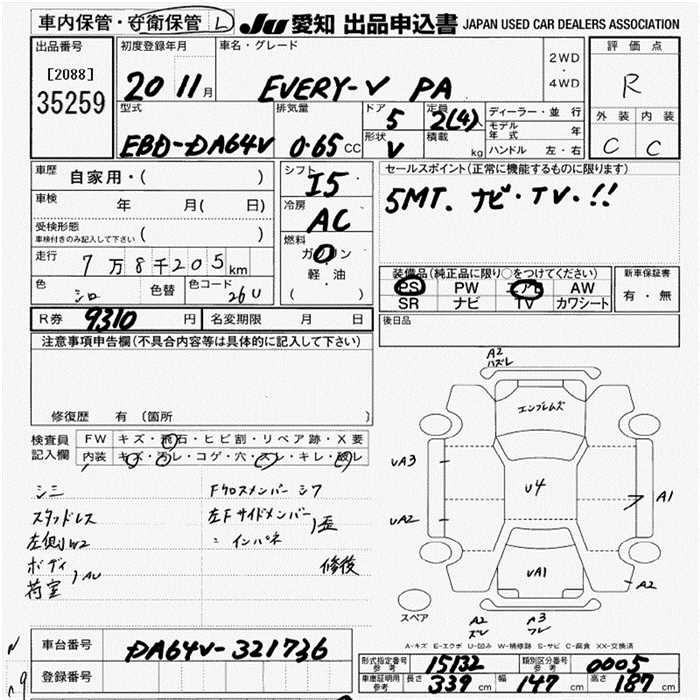 車内保管・守衛保管 L
JU 愛知 出品申込書 JAPAN USED CAR DEALERS ASSOCIATION
出品番号
[2088]
35259
初度登録年月
20 11月
車名・グレード
EVERY-V PA
2WD
・
4WD
評価点
R
外装 内装
C C
型式
EBD-DA64V
排気量
0.65CC
ドア
5
形状
V
定員
2(4)
積載
kg
ディーラー・並行
モデル年式 年
ハンドル 左・右
車歴
自家用・( )
車検
年 月( 日)
受検形態
車検付きのみ記入して下さい ( )
走行
7万8千205km
色
シロ
色替
色コード
26U
シフト
I5
冷房
AC
燃料
ガソリン
軽・油
( )
セールスポイント(正常に機能するものに限ります)
5MT. ナビ・TV・!!
装備品(純正品に限り○をつけてください)
PS PW エアB AW
SR ナビ TV カワシート
新車保証書
有・無
R券 9310円
名変期限 月 日
後日品
注意事項申告欄(不具合内容等は具体的に記入して下さい)
修復歴 有 〔箇所
検査員
記入欄
FW キズ・飛石・ヒビ割・リペア跡・X要
内装 キズ・汚レ・コゲ・穴・スレ・キレ・破レ
シミ
スタッドレス
左側W2
ボディ
荷室
AU
Fクロスメンバー シワ
左Fサイドメンバー
〃 インパネ
歪
修復
A2
ハズレ
エンブレムズ
UA3
UA2
U4
A1
UA1
A2
スペア
A2
ズレ
A3
ワレ
A-キズ E-エクボ U-凹み W-補修跡 S-サビ C-腐食 XX-交換済
車台番号
DA64V-321736
登録番号
型式指定番号
参考
15132
類別区分番号
参考
0005
車庫証明用
参考
長さ 339cm 幅 147cm 高さ 187cm